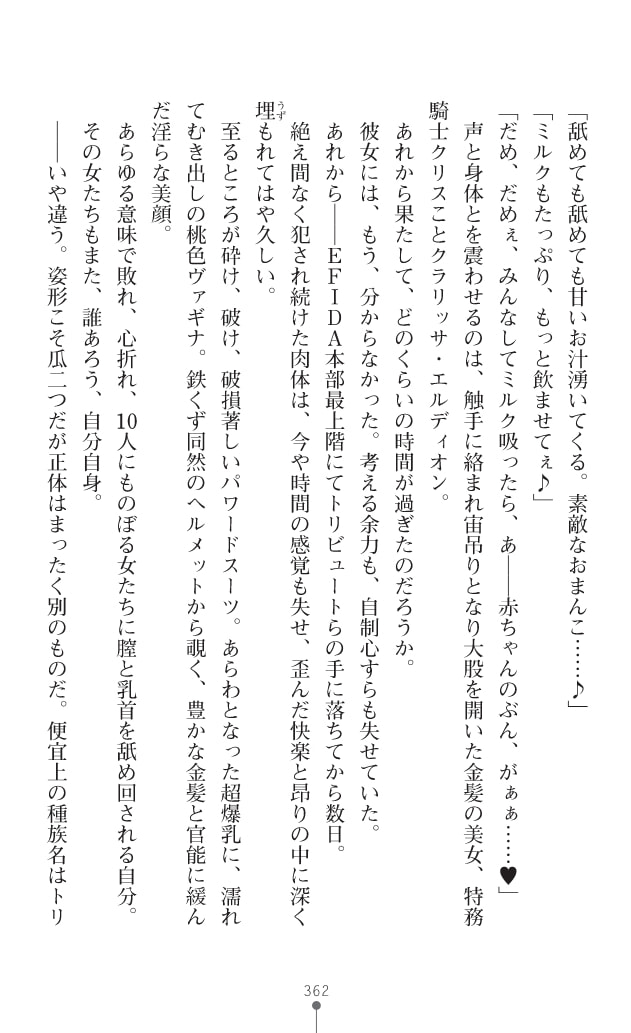 「舐めても舐めても甘いお汁湧いてくる。素敵なおまんこ……♪」
「ミルクもたっぷり、もっと飲ませてぇ♪」
「だめ、だめぇ、みんなしてミルク吸ったら、あ――赤ちゃんのぶん、がぁぁ……♥」
　声と身体とを震わせるのは、触手に絡まれ宙吊りとなり大股を開いた金髪の美女、特務
騎士クリスことクラリッサ・エルディオン。
　あれから果たして、どのくらいの時間が過ぎたのだろうか。
　彼女には、もう、分からなかった。考える余力も、自制心すらも失せていた。
　あれから――ＥＦＩＤＡ本部最上階にてトリビュートらの手に落ちてから数日。
　絶え間なく犯され続けた肉体は、今や時間の感覚も失せ、歪んだ快楽と昂りの中に深く
埋うずもれてはや久しい。
　至るところが砕け、破け、破損著しいパワードスーツ。あらわとなった超爆乳に、濡れ
てむき出しの桃色ヴァギナ。鉄くず同然のヘルメットから覗く、豊かな金髪と官能に緩ん
だ淫らな美顔。
　あらゆる意味で敗れ、心折れ、10人にものぼる女たちに膣と乳首を舐め回される自分。
　その女たちもまた、誰あろう、自分自身。
　――いや違う。姿形こそ瓜二つだが正体はまったく別のものだ。便宜上の種族名はトリ
362